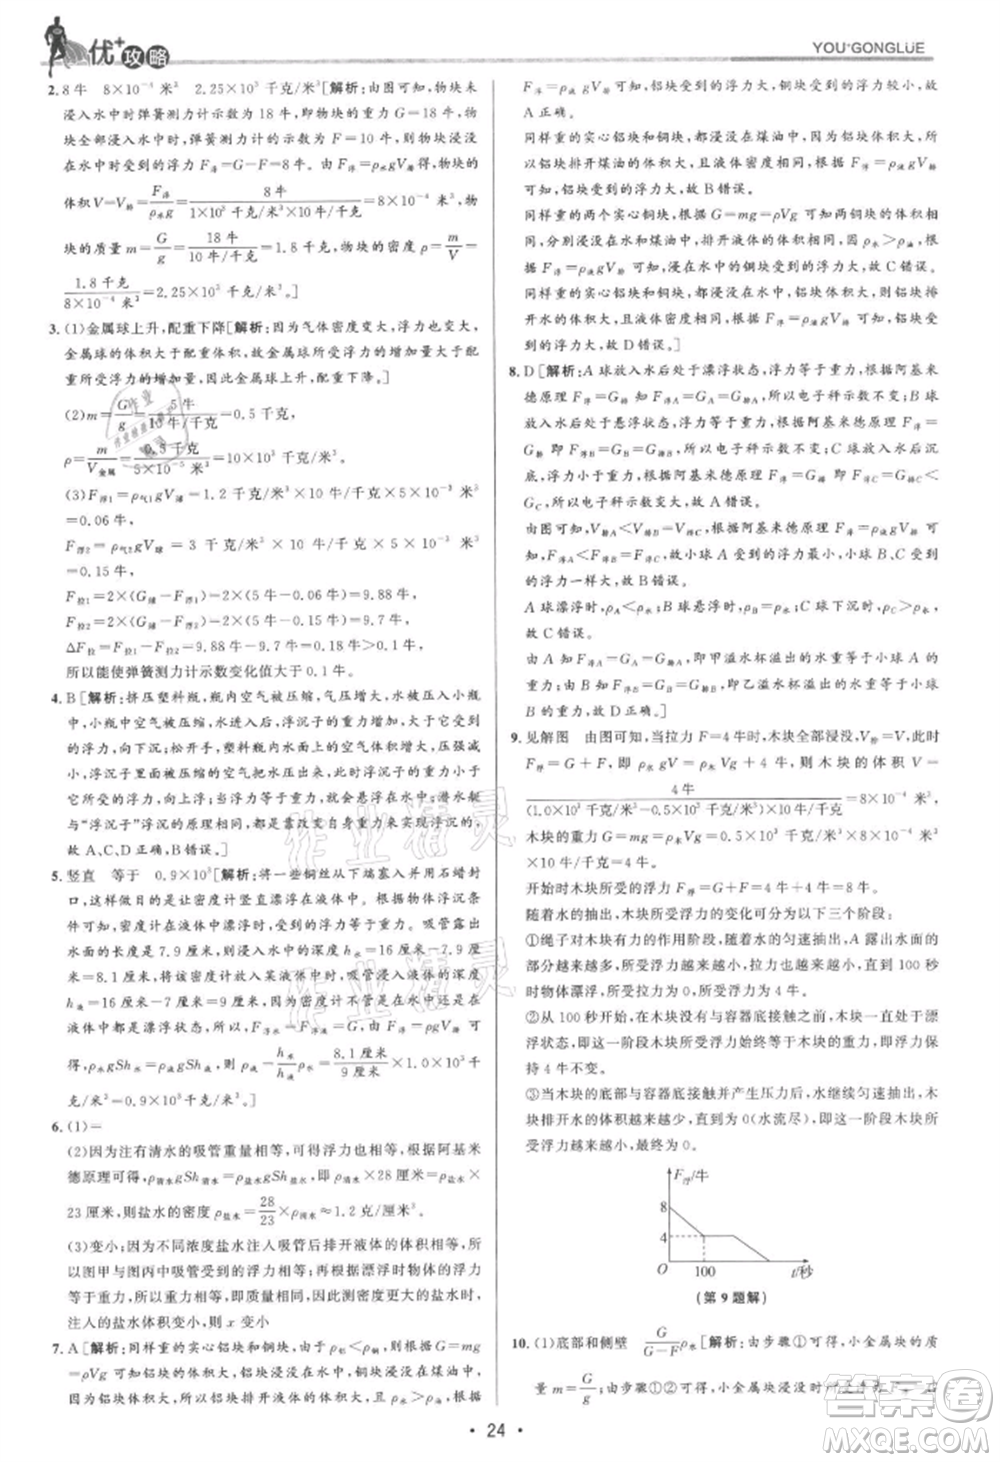 优+攻略
YOU+GONGLUE
2. 8牛 8×10⁻⁴ 米³ 2.25×10³ 千克/米³[解析:由图可知,物块
浸入水中时弹簧测力计示数,即物块的重力 G=18 牛,物
块全部浸入水中时,弹簧测力计的示数为 F=10 牛,物块浸没
在水中时受到的浮力 F浮=G-F=8牛。由 F浮=ρ水gV排得,物块的
体积 V=V排=F浮/ρ水g=8牛/(1×10³ 千克/米³×10牛/千克)=8×10⁻⁴ 米³,物
块的质量 m=G/g=18牛/(10牛/千克)=1.8 千克,物块的密度 ρ=m/V=
1.8千克/(8×10⁻⁴ 米³)=2.25×10³ 千克/米³。]
3. (1)金属球上升,配重下降[解析:因为气体密度变大,浮力也变大,
金属球的体积大于配重体积,故金属球所受浮力的增加量,大于配重
所受浮力的增加量,故金属球上升,配重下降。]
(2)m=G/g=5牛/(10牛/千克)=0.5 千克,
ρ=m/V金属=0.5千克/(5×10⁻³ 米³)=100 千克/米³
(3)F浮1=ρ气1gV球=1.2 千克/米³×10牛/千克×5×10⁻³ 米³
=0.06 牛,
F浮2=ρ气2gV球=3 千克/米³×10牛/千克×5×10⁻³ 米³
=0.15 牛,
F拉1=2×(G球-F浮1)=2×(5牛-0.06牛)=9.88 牛,
F拉2=2×(G球-F浮2)=2×(5牛-0.15牛)=9.7 牛,
ΔF拉=F拉1-F拉2=9.88 牛-9.7牛=0.18 牛>0.1 牛,
所以能使弹簧测力计示数变化值大于 0.1 牛。
4. B[解析:挤压塑料瓶,瓶内空气被压缩,气压增大,将压强传递给水,
中,小瓶中空气被压缩,水进入后,浮沉子的重力变大,当重力大于受到
的浮力,向下沉;松开手,塑料瓶上面的空气体积变大,压强减
小,浮沉子里面的水被压出,浮沉子的重力变小,当重力小于浮力,故
上浮。当浮力等于重力,浮沉子悬浮在水中;潜水艇
与“浮沉子”浮沉的原理相同,都是靠改变自身重力来实现浮沉的。
故 A、C、D 错误,B 正确。]
5. 竖直 等于 0.9×10³[解析:将一些铜丝从下端塞入并用石蜡封
口,这样做的目的是让密度计竖直漂浮在液体中。由物体浮沉条件
知,密度计在液体中漂浮,受到的浮力等于重力。吸管露出
水面的长度是 7.9 厘米,则吸管浸入水中的深度 h水=16厘米-7.9 厘
米=8.1厘米,将该密度计放入某液体中,吸管浸入液体的深度
h液=16 厘米-7 厘米=9 厘米,密度计在水中和在
液体中都是漂浮状态,所以,F浮水=F浮液=G,由 F浮=ρgV排
得,ρ水gSh水=ρ液gSh液,则 ρ液=h水/h液ρ水=8.1厘米/9厘米×1.0×10³ 千
克/米³=0.9×10³ 千克/米³。]
6. (1)=
(2)因为注有清水的吸管重量相等,可得浮力相等,根据阿基米
德原理可得,ρ清水gSh清水=ρ盐水gSh盐水,即 ρ清水×28 厘米=ρ盐水×
23 厘米,则盐水的密度 ρ盐水=28/23×ρ清水≈1.2 克/厘米³
(3)变小;因为不同浓度盐水注入吸管后排开液体的体积相同,所
以图甲与图丙中吸管所受浮力相等,根据漂浮时浮力等于
重力,可得两吸管总重相等。因为图丙注入的是密度更大的盐水,所以
注入的盐水体积变小,则 x 变小
7. A[解析:同样重的实心铝块和铜块,由于 ρ铝<ρ铜,根据 G=mg
=ρVg 可知铝块体积大,铝块浸没在水中,铜块浸没在煤油中,
所以铝块排开液体的体积大,且水的密度大于煤油的密度,根据
F浮=ρ液gV排可知,铝块受到的浮力大,铜块受到的浮力小,故
A 正确。
同样重的实心铝块和铜块,都浸没在煤油中,铝块体积大,所
以铝块排开煤油的体积大,而液体密度相同,根据 F浮=ρ液gV排可
知,铝块受到的浮力大,故 B 错误。
同样重的两个实心铜块,由 G=mg=ρVg 可知铜块体积相
同,分别浸没在水和煤油中,排开液体的体积相同,而 ρ水>ρ油,根
据 F浮=ρ液gV排可知,浸没在水中的铜块受到的浮力大,故 C 错误。
同样重的实心铝块和铜块,都浸没在水中,铝块体积大,铝块排
开水的体积大,根据 F浮=ρ液gV排可知,铝块受到的浮力
大,故 D 错误。]
8. D[解析:A 球放入水后处于漂浮状态,浮力等于重力,根据阿基米
德原理可知 F浮A=GA=G排A,所以电子秤示数不变;B 球
放入水后处于悬浮状态,浮力等于重力,根据阿基米德原理可知
F浮B=GB=G排B,所以电子秤示数不变;C 球放入水后沉
底,浮力小于重力,根据阿基米德原理 F浮C=G排C<
GC,所以电子秤示数变大,故 A、C 错误。
由图可知,V排A<V排B=V排C,根据阿基米德原理 F浮=ρ液gV排可
知,F浮A<F浮B=F浮C,故小球 A 受到的浮力最小,小球B、C受到
的浮力一样大,故 B 错误。
A 球漂浮时,ρA<ρ水;B 球悬浮时,ρB=ρ水;C 球下沉时,ρC>ρ水,
故 C 错误。
由 A 知,GA=G排A,即甲中溢出的水重等于小球
A 的重力;GB=G排B,即乙溢水杯溢出的水重等于小球
B 的重力,故 D 正确。]
9. 见解图 由图可知,当拉力 F=4牛时,木块全部浸没,V排=V,此时
F浮=G+F,即 ρ水Vg=ρ木Vg+4 牛,所以木块的体积 V=
4牛/((1.0×10³ 千克/米³-0.5×10³ 千克/米³)×10牛/千克)=8×10⁻⁴ 米³,
木块的重力 G=mg=ρ木Vg=0.5×10³ 千克/米³×8×10⁻⁴ 米³×
10牛/千克=4牛。
开始时木块所受的浮力 F浮=G+F=4牛+4牛=8牛。
随着水的抽出,木块所受浮力的变化可分为以下三个阶段:
①绳子对木块有力的作用阶段,随着水的匀速抽出,A 露出水面的
部分越来越多,浮力越来越小,拉力也越来越小,直到 100 秒
时物体漂浮,浮力等于重力为 4 牛。
②从 100 秒开始到木块与容器底部接触前,木块一直处于漂
浮状态,所以这一阶段木块所受浮力始终等于木块的重力,
4牛不变。
③当木块的底部与容器底接触并产生压力后,水继续匀速抽出,木
块排开水的体积越来越少,直到最后为 0(水流尽),故这一阶段木块所
受浮力越来越小,最终为 0。
F浮/牛
8
4
O 100 t/秒
(第 9 题解)
10. (1)底部和侧壁 G/(G-F)ρ水[解析:由步骤①可得,小金属块的质
量 m=G/g;由步骤①②可得,小金属块浸没时
· 24 ·
答案圈
MXQE.COM
作业精灵
作业精灵